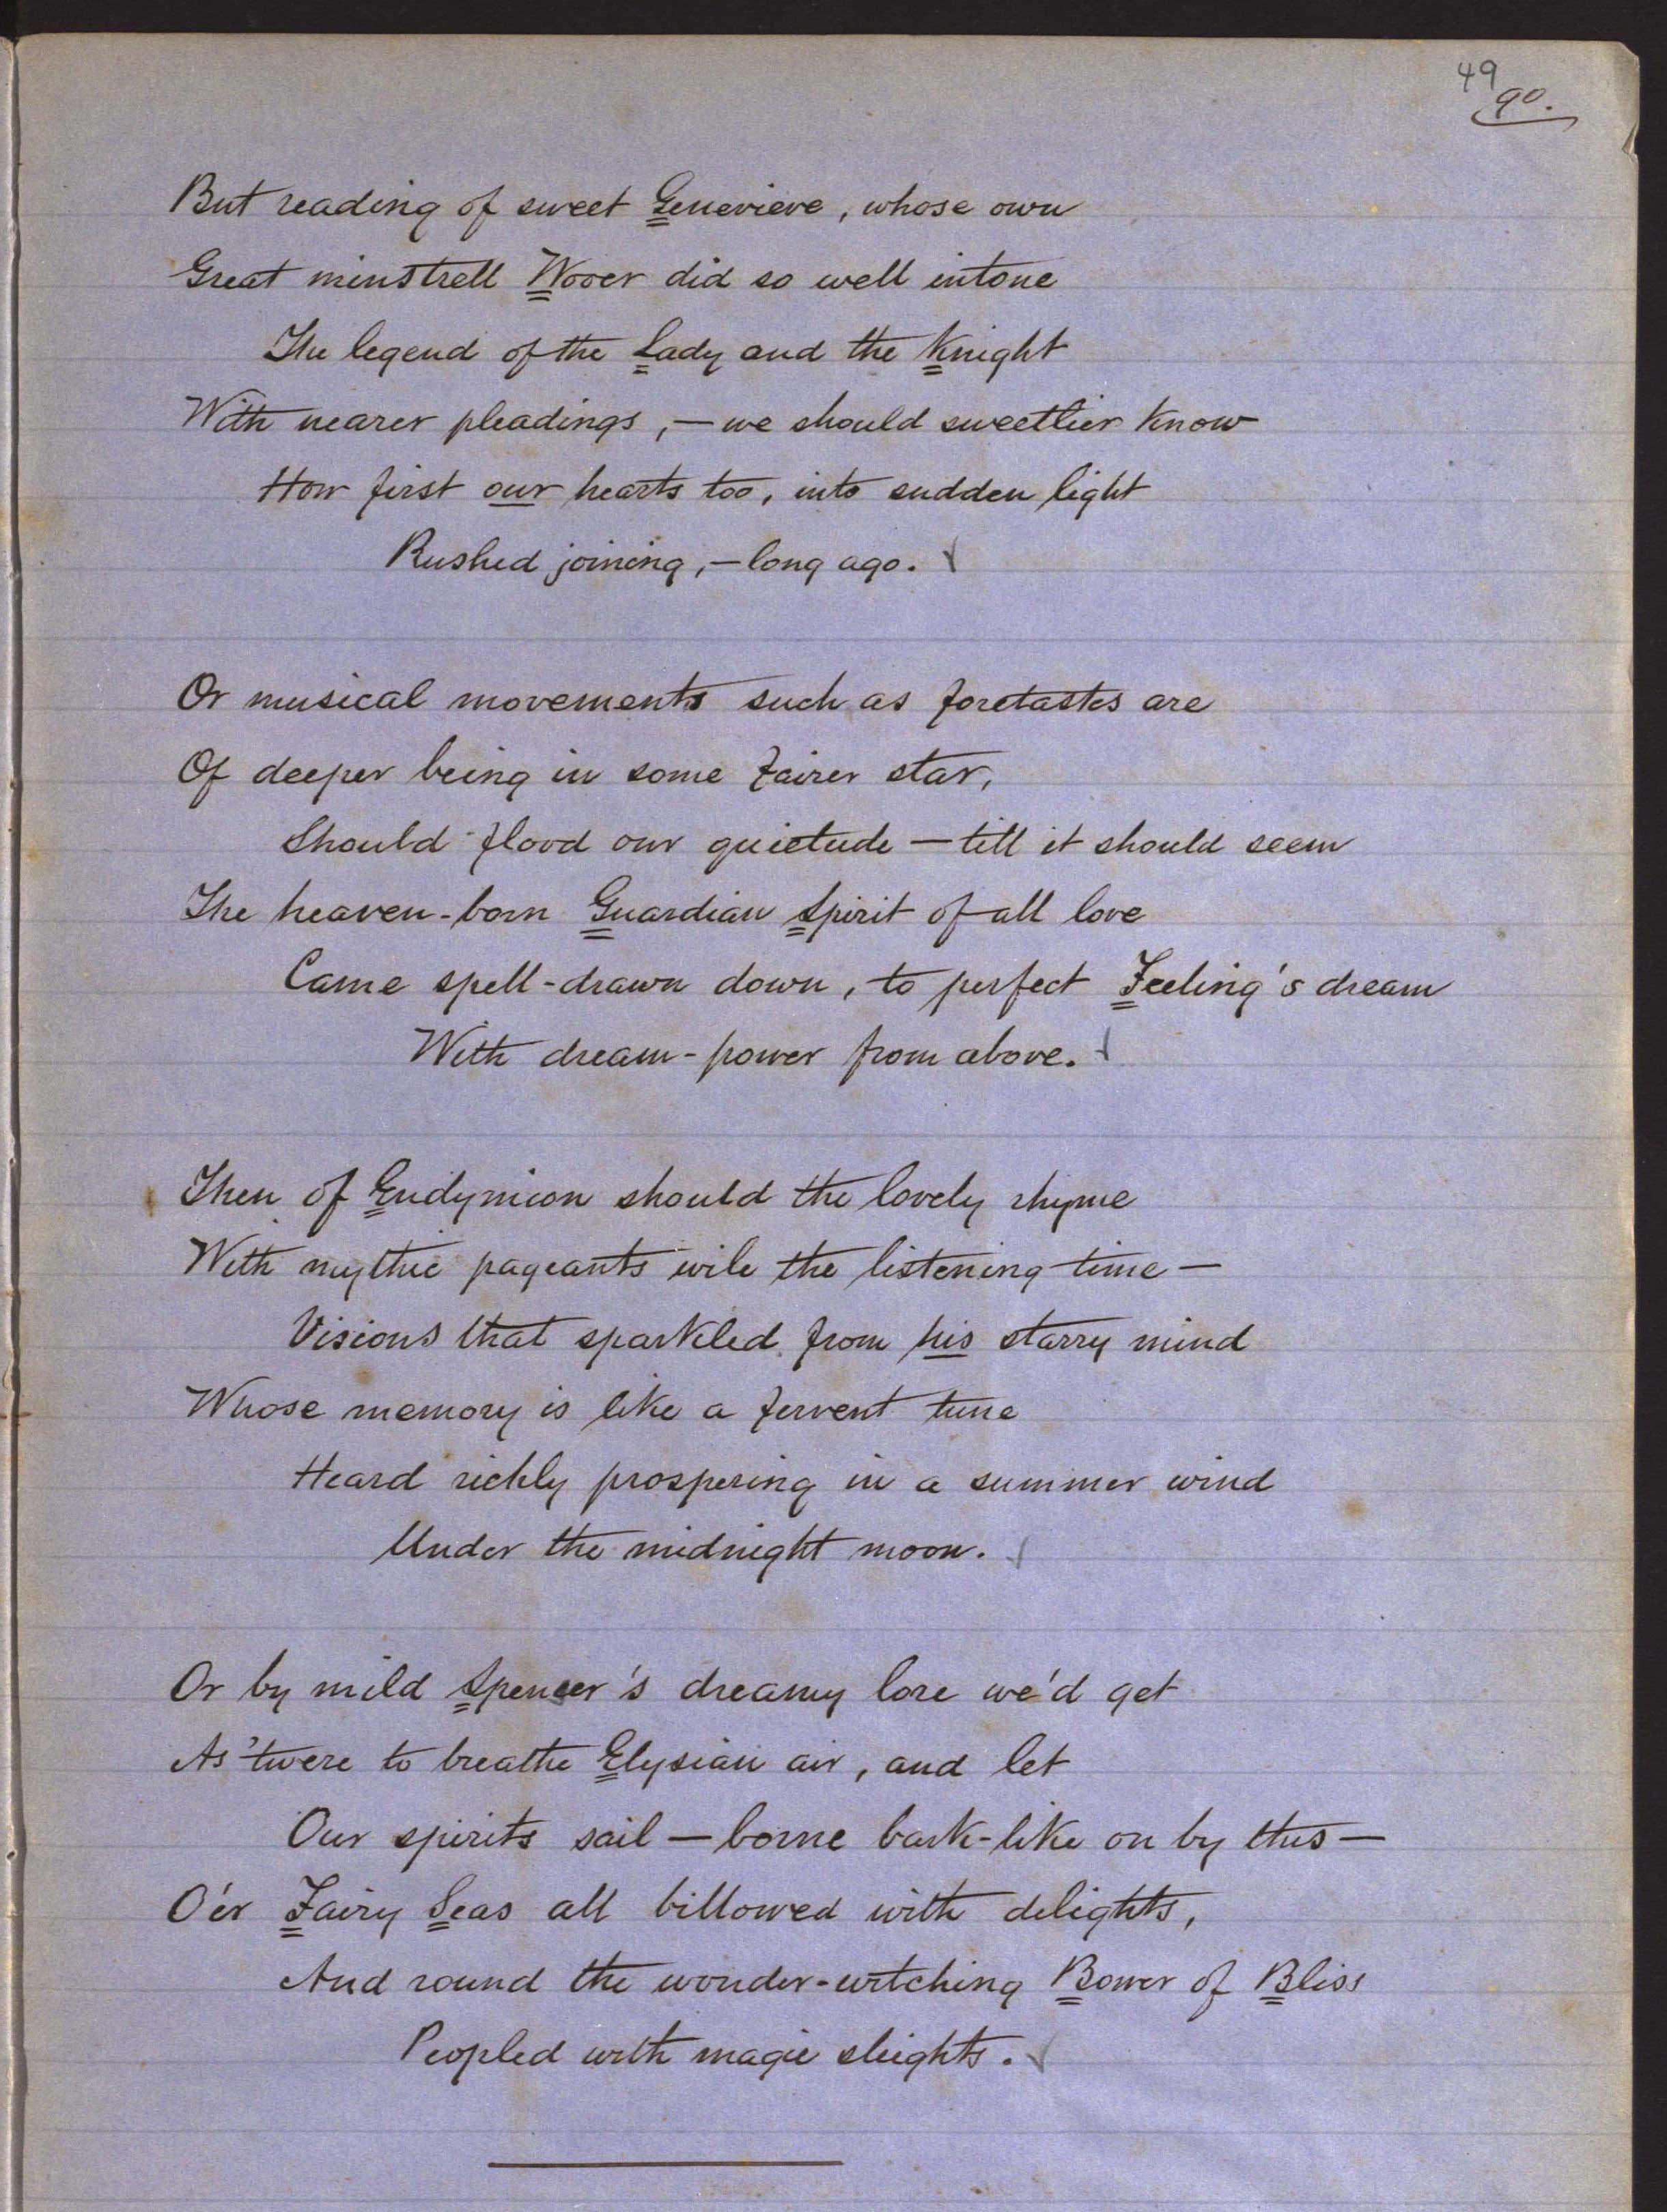 49
90.
But reading of sweet Genevieve, whose own
Great minstrell Wooer did so well intone
The legend of the Lady and the Knight
With nearer pleadings,—we should sweetlier know
How first our hearts too, into sudden light
Rushed joining,—long ago.
Or musical movements such as foretastes are
Of deeper being in some fairer star,
Should flood our quietude—till it should seem
The heaven-born Guardian Spirit of all love
Came spell-drawn down, to perfect Feeling's dream
With dream-power from above.
Then of Endymion should the lovely rhyme
With mythic pageants wile the listening time—
Visions that sparkled from his starry mind
Whose memory is like a fervent tune
Heard richly prospering in a summer wind
Under the midnight moon.
Or by mild Spencer's dreamy lore we'd get
As 'twere to breathe Elysian air, and let
Our spirits sail—borne bark-like on by this—
O'er Fairy Seas all billowed with delights,
And round the wonder-witching Bower of Bliss
Peopled with magic sleights.